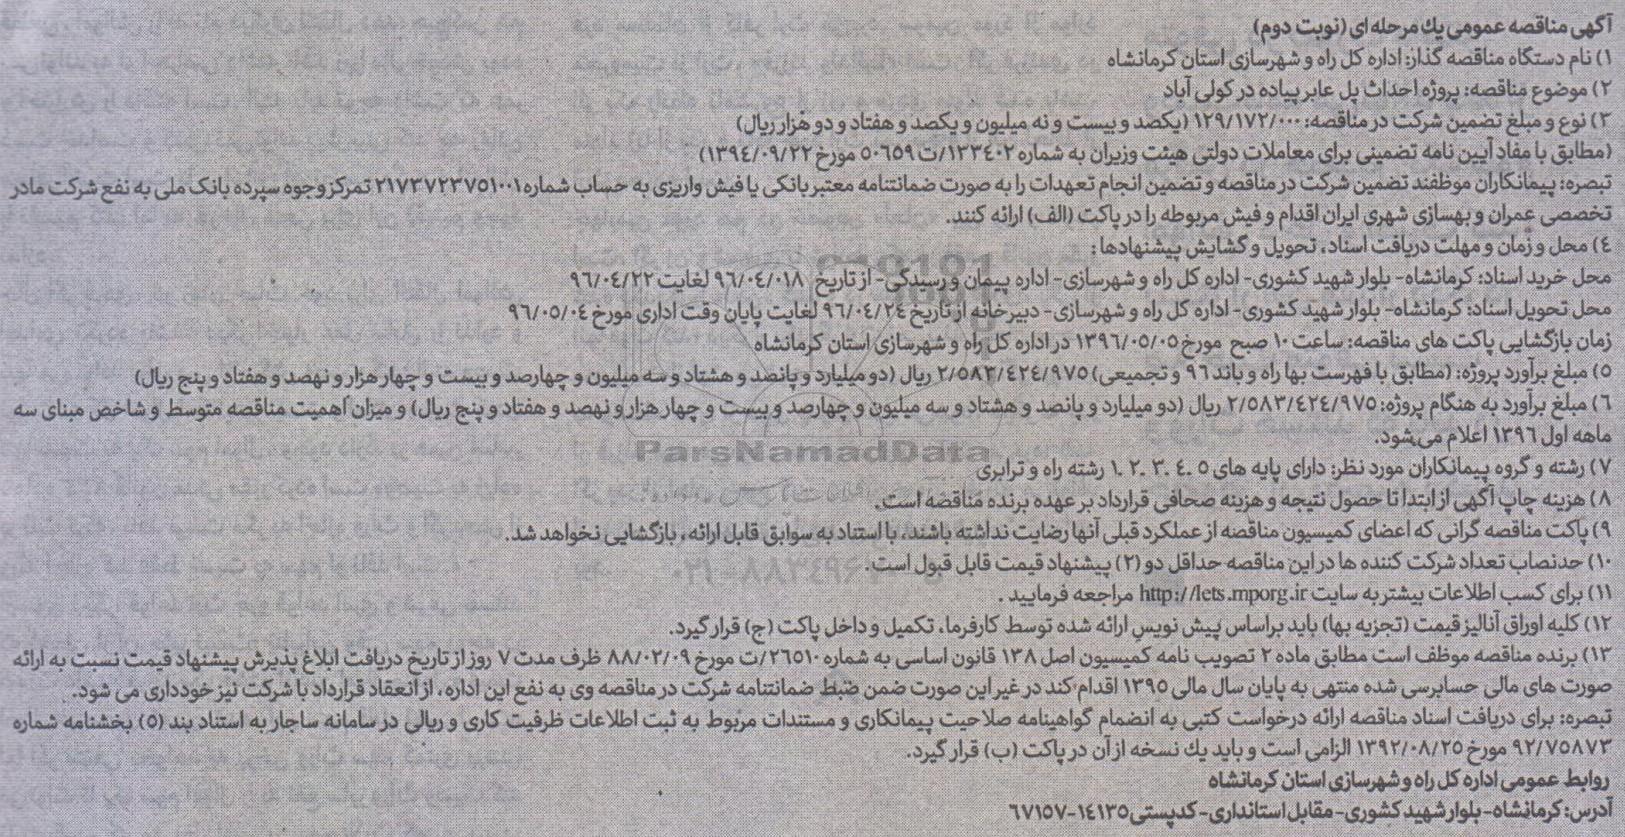 آگهی مناقصه عمومی یك مرحله ای (نوبت دوم)
۱) نام دستگاه مناقصه گذار: اداره کل راه و شهرسازی استان کرمانشاه
۲) موضوع مناقصه: پروژه احداث پل عابر پیاده در کولی آباد
۳) نوع و مبلغ تضمین شرکت در مناقصه: ۱۲۹/۱۷۲/۰۰۰ (یکصد و بیست و نه میلیون و یکصد و هفتاد و دو هزار ریال)
(مطابق با مفاد آیین نامه تضمینی برای معاملات دولتی هیئت وزیران به شماره ۱۲۳۴۰۲/ت۵۰۶۵۹ مورخ ۱۳۹۴/۰۹/۲۲)
تبصره: پیمانکاران موظفند تضمین شرکت در مناقصه و تضمین انجام تعهدات را به صورت ضمانتنامه معتبر بانکی یا فیش واریزی به حساب شماره ۲۱۷۳۷۲۳۷۵۱۰۰۱ تمرکز وجوه سپرده بانک ملی به نفع شرکت مادر
تخصصی عمران و بهسازی شهری ایران اقدام و فیش مربوطه را در پاکت (الف) ارائه کنند.
۴) محل و زمان و مهلت دریافت اسناد، تحویل و گشایش پیشنهادها:
محل خرید اسناد: کرمانشاه- بلوار شهید کشوری- اداره کل راه و شهرسازی- اداره پیمان و رسیدگی- از تاریخ ۹۶/۰۴/۰۱۸ لغایت ۹۶/۰۴/۲۲
محل تحویل اسناد: کرمانشاه- بلوار شهید کشوری- اداره کل راه و شهرسازی- دبیرخانه از تاریخ ۹۶/۰۴/۲۴ لغایت پایان وقت اداری مورخ ۹۶/۰۵/۰۴
زمان بازگشایی پاکت های مناقصه: ساعت ۱۰ صبح مورخ ۱۳۹۶/۰۵/۰۵ در اداره کل راه و شهرسازی استان کرمانشاه
۵) مبلغ برآورد پروژه: (مطابق با فهرست بها راه و باند ۹۶ و تجمیعی) ۲/۵۸۳/۴۲۴/۹۷۵ ریال (دو میلیارد و پانصد و هشتاد و سه میلیون و چهارصد و بیست و چهار هزار و نهصد و هفتاد و پنج ریال)
۶) مبلغ برآورد به هنگام پروژه: ۲/۵۸۳/۴۲۴/۹۷۵ ریال (دو میلیارد و پانصد و هشتاد و سه میلیون و چهارصد و بیست و چهار هزار و نهصد و هفتاد و پنج ریال) و میزان اهمیت مناقصه متوسط و شاخص مبنای سه
ماهه اول ۱۳۹۶ اعلام می شود.
۷) رشته و گروه پیمانکاران مورد نظر: دارای پایه های ۵ .۴ .۳ .۲ .۱ رشته راه و ترابری
۸) هزینه چاپ آگهی از ابتدا تا حصول نتیجه و هزینه صحافی قرارداد بر عهده برنده مناقصه است.
۹) پاکت مناقصه گرانی که اعضای کمیسیون مناقصه از عملکرد قبلی آنها رضایت نداشته باشند، با استناد به سوابق قابل ارائه، بازگشایی نخواهد شد.
۱۰) حدنصاب تعداد شرکت کننده ها در این مناقصه حداقل دو (۲) پیشنهاد قیمت قابل قبول است.
۱۱) برای کسب اطلاعات بیشتر به سایت http://iets.mporg.ir مراجعه فرمایید .
۱۲) کلیه اوراق آنالیز قیمت (تجزیه بها) باید براساس پیش نویس ارائه شده توسط کارفرما، تکمیل و داخل پاکت (ج) قرار گیرد.
۱۳) برنده مناقصه موظف است مطابق ماده ۲ تصویب نامه کمیسیون اصل ۱۳۸ قانون اساسی به شماره ۲۶۵۱۰/ت مورخ ۸۸/۰۲/۰۹ ظرف مدت ۷ روز از تاریخ دریافت ابلاغ پذیرش پیشنهاد قیمت نسبت به ارائه
صورت های مالی حسابرسی شده منتهی به پایان سال مالی ۱۳۹۵ اقدام کند در غیر این صورت ضمن ضبط ضمانتنامه شرکت در مناقصه وی به نفع این اداره، از انعقاد قرارداد با شرکت نیز خودداری می شود.
تبصره: برای دریافت اسناد مناقصه ارائه درخواست کتبی به انضمام گواهینامه صلاحیت پیمانکاری و مستندات مربوط به ثبت اطلاعات ظرفیت کاری و ریالی در سامانه ساجار به استناد بند (۵) بخشنامه شماره
۹۲/۷۵۸۷۳ مورخ ۱۳۹۲/۰۸/۲۵ الزامی است و باید یك نسخه از آن در پاکت (ب) قرار گیرد.
روابط عمومی اداره کل راه و شهرسازی استان کرمانشاه
آدرس: کرمانشاه- بلوار شهید کشوری- مقابل استانداری- کدپستی ۱۴۱۳۵-۶۷۱۵۷
ParsNamadData